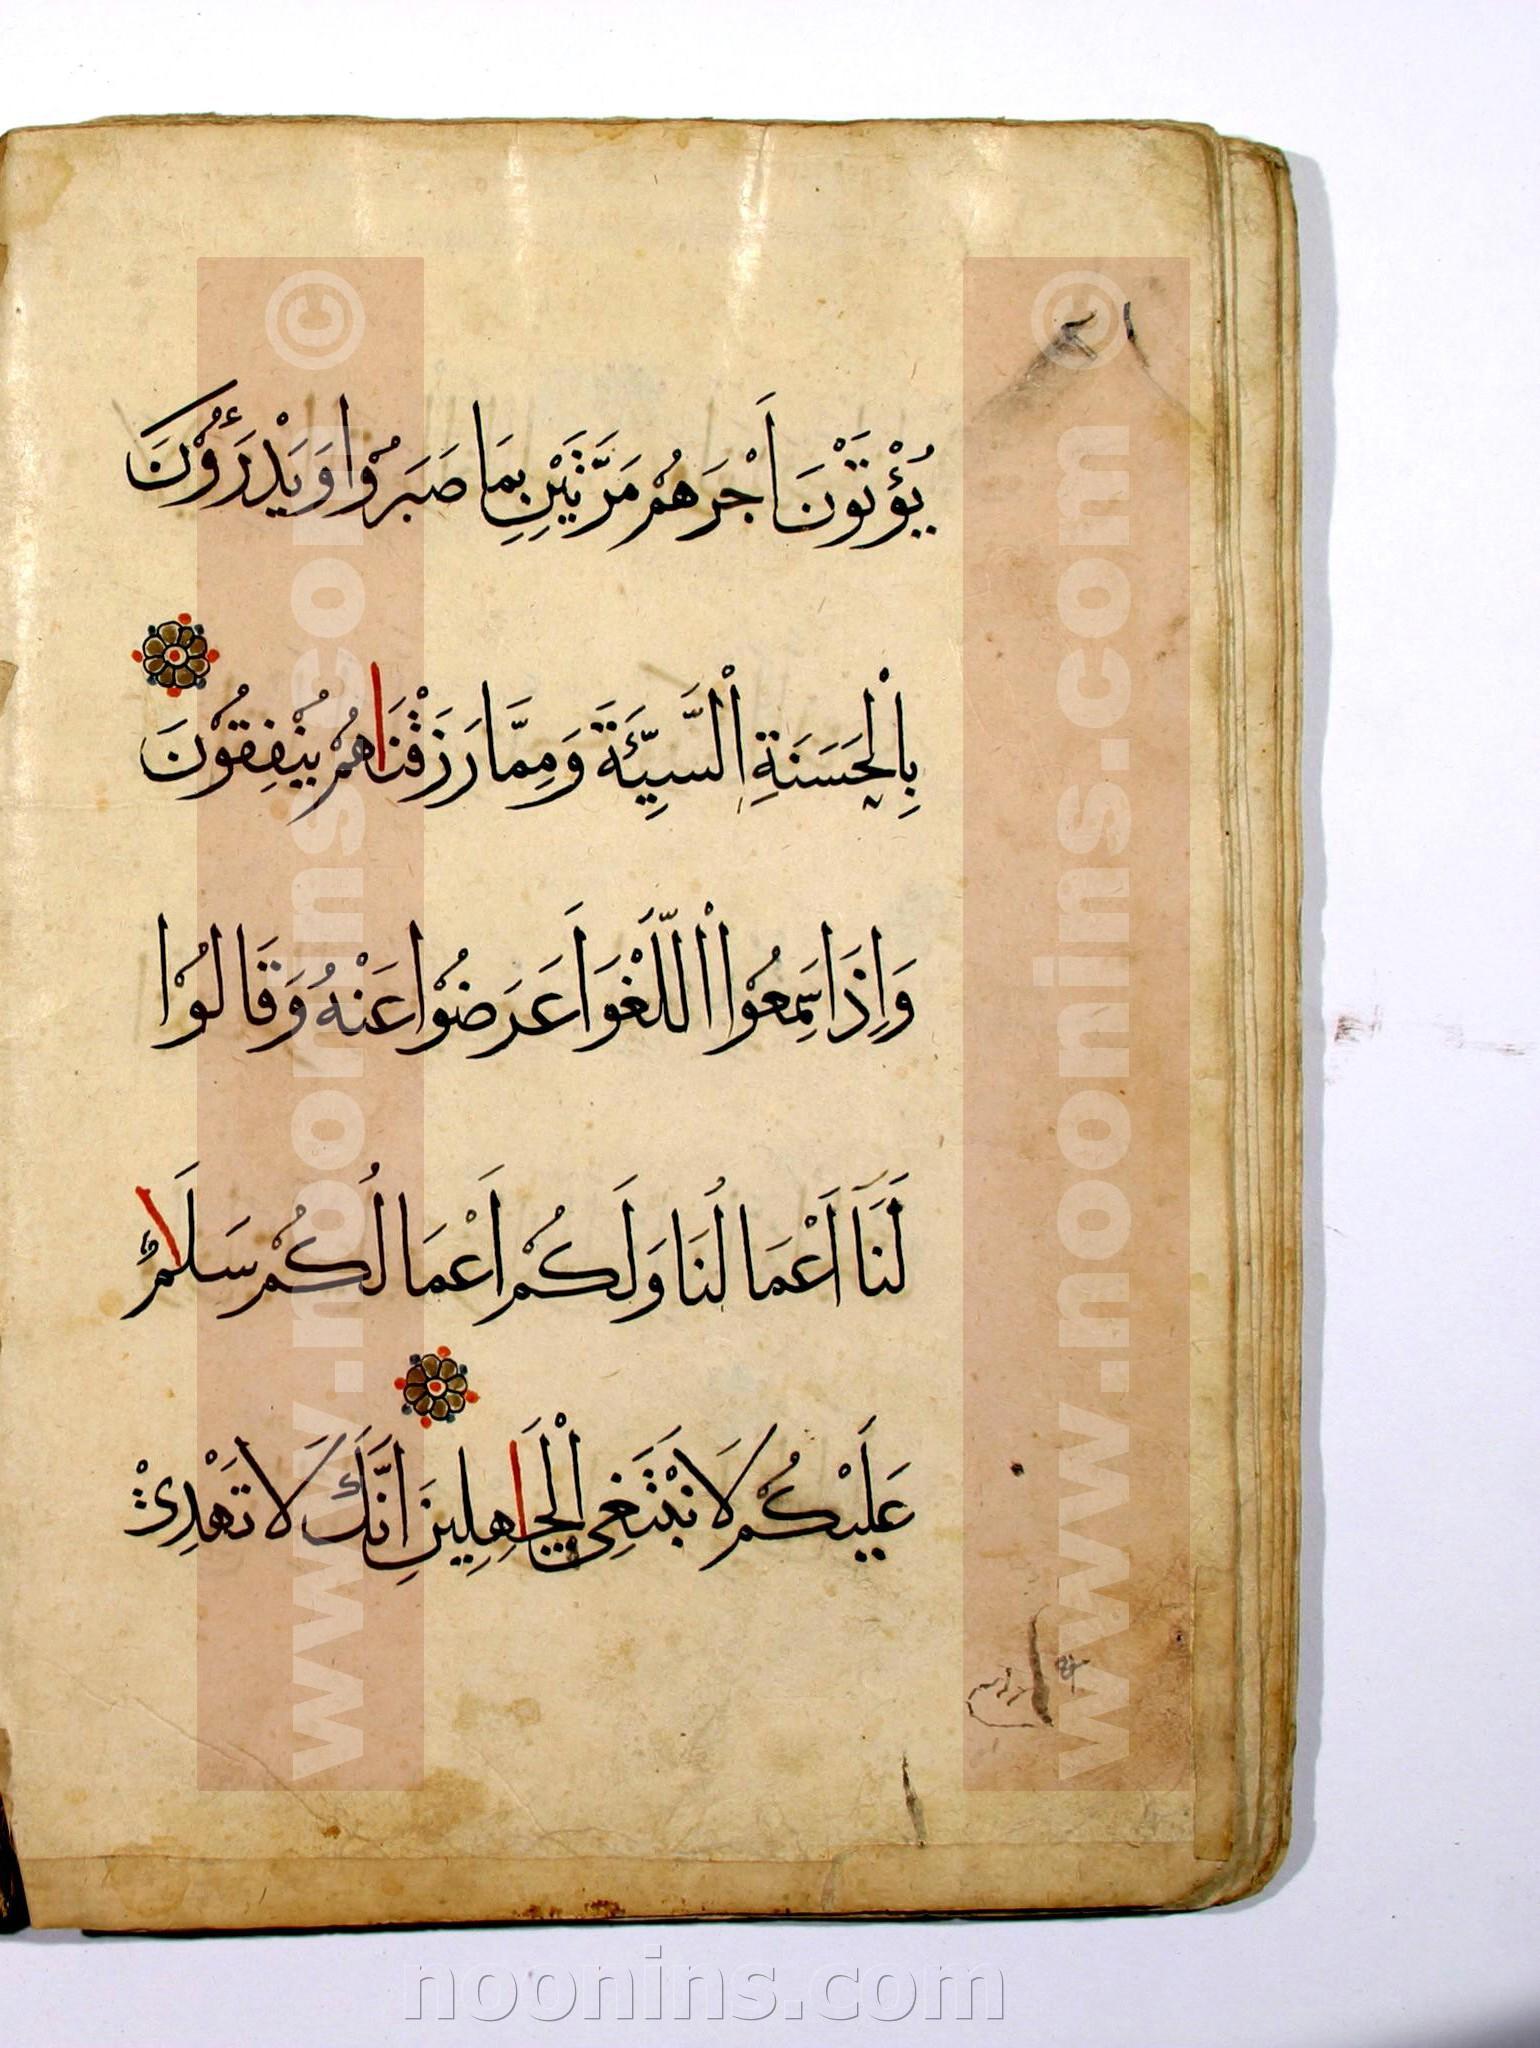 يُؤْتَوْنَ اَجْرَهُمْ مَرَّتَيْنِ بِمَا صَبَرُوْا وَيَدْرَءُوْنَ
بِالْحَسَنَةِ السَّيِّئَةَ وَمِمَّا رَزَقْنَاهُمْ يُنْفِقُوْنَ
وَاِذَا سَمِعُوْا اللَّغْوَ اَعْرَضُوْا عَنْهُ وَقَالُوْا
لَنَا اَعْمَالُنَا وَلَكُمْ اَعْمَالُكُمْ سَلَامٌ
عَلَيْكُمْ لَا نَبْتَغِى الْجَاهِلِينَ اِنَّكَ لَا تَهْدِىْ
www.noonins.com ©
www.noonins.com ©
noonins.com